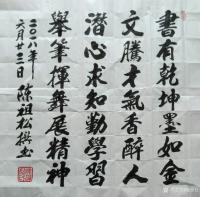 書有乾坤墨如金
文騰才氣香醉人
潛心求知勤學習
舉筆揮舞展精神
二〇一八年
六月廿三日 陈祖松撰书